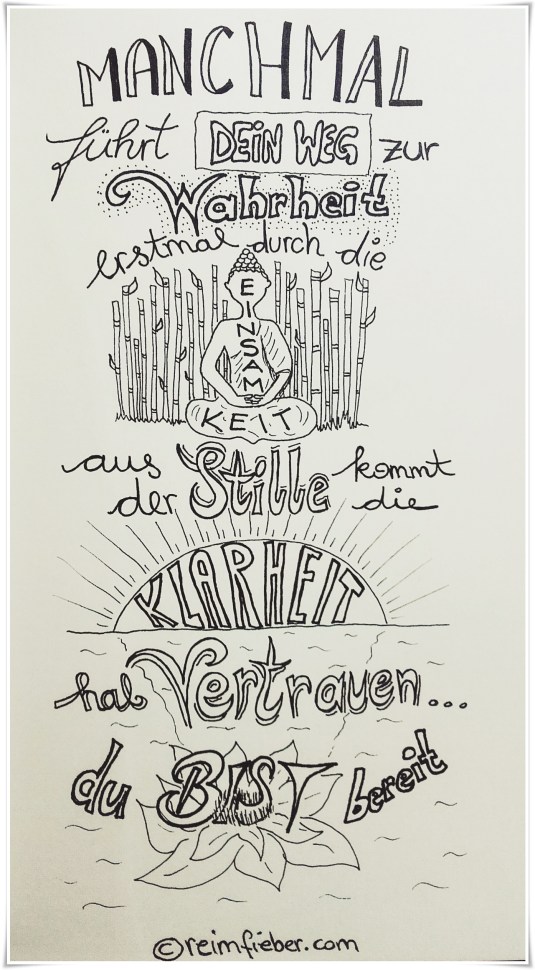 MANCHMAL
führt DEIN WEG zur
Wahrheit
erstmal durch die
EINSAM
KEIT
aus der Stille kommt die
KLARHEIT
hab Vertrauen...
du BIST bereit
©reimfieber.com